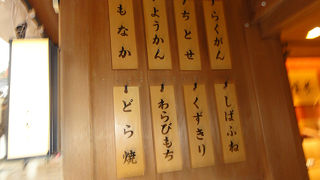 らくがん
ちとせ
ようかん
もなか
しばふね
くずきり
わらびもち
どら焼